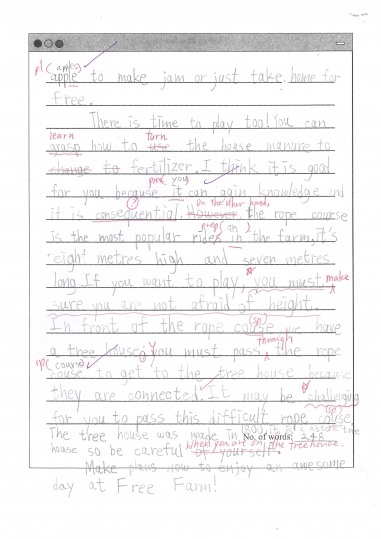 pl (apples)
apple to make jam or just take home for
free.
There is time to play too! You can
learn turn
grasp how to use the house manure to
change to fertilizer. I think it is good
pron (you)
for you because it can gain knowledge and
On the other hand,
it is consequential. However, the rope course
prep (on)
is the most popular rides in the farm, it's
eight metres high and seven metres
long. If you want to play, you must make
sure you are not afraid of height.
(sp)
In front of the rope course we have
through
a tree house. You must pass the rope
sp (course)
house to get to the tree house because
they are connected. It may be challenging
(sp)
for you to pass this difficult rope course.
The tree house was made in
No. of words: 248
When you are on the tree house.
house so be careful of yourself.
Make plans now to enjoy an awesome
day at Free Farm!